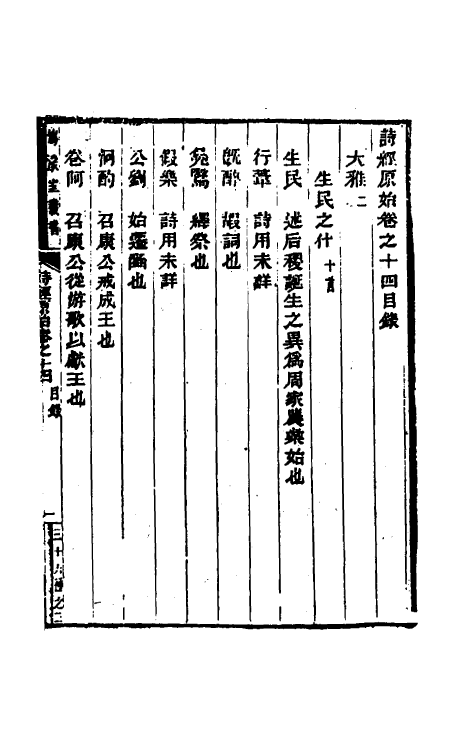 詩經原始卷之十四目錄
大雅二
生民之什 十首
生民 述后稷誕生之異爲周家農業始也
行葦 詩用未詳
旣醉 嘏詞也
鳧鷖 繹祭也
假樂 詩用未詳
公劉 始遷豳也
泂酌 召康公戒成王也
卷阿 召康公從游歌以獻王也
詩經原始卷之十四 目錄 一